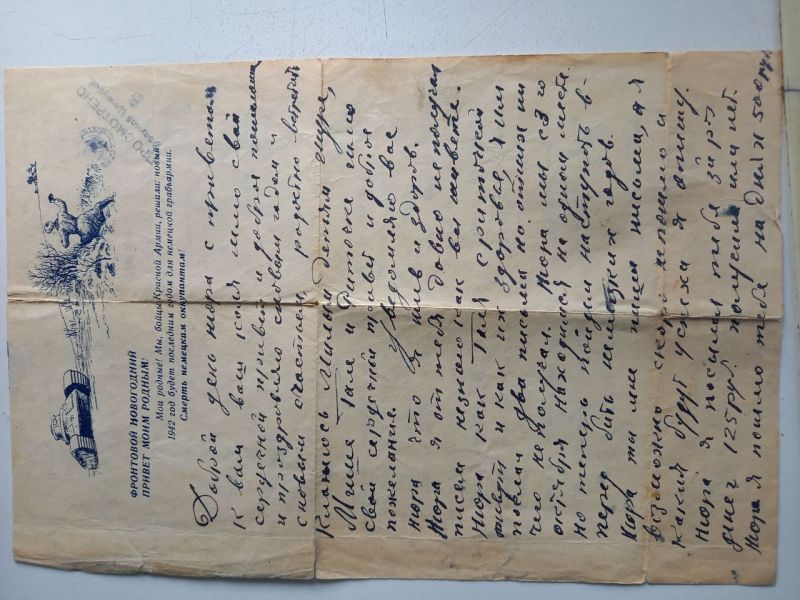 ПРОСМОТРЕНО
ФРОНТОВОЙ НОВОГОДНИЙ
ПРИВЕТ МОИМ РОДНЫМ!
Мои родные! Мы, бойцы Красной Армии, решали: новый
1942 год будет последним годом для немецкой грабьармии.
Смерть немецким оккупантам!
Доброй день нюра с приветом
к вам ваш коля шлю свай
сердечной привет и доброе пожелание
и проздровляю с новым годом и
с новым счастьем родостно встретить
Кланеюсь Милым детям шуре,
Мише Гале и Риточке шлю
свой сердечной привет и доброе
пожелание. Уведомляю вас
нюра что я жив и здоров.
Нюра я от тебя давно не получал
писем незнаю как вы живете.
Нюра как Галя с риточкой
живут и как их здоровье, я им
послал два письма но отних ни
чего не получал. Нюра мы с 3го
октября находимся на одном месте
но теперь пойдем наступать в-
перед бить немецких гадов.
Нюра ты мне пиши письма, а я
возможно скоро и
какий будут успеха я опишу.
Нюра я посылал тебе
денег 125 руб. получила или нет.
Нюра я пошлю тебе на днях 500 руб.